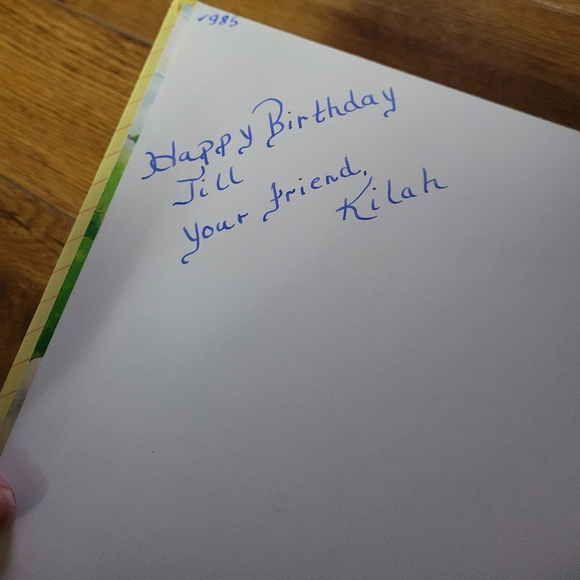 1985
Happy Birthday
Jill
Your friend,
Kilah